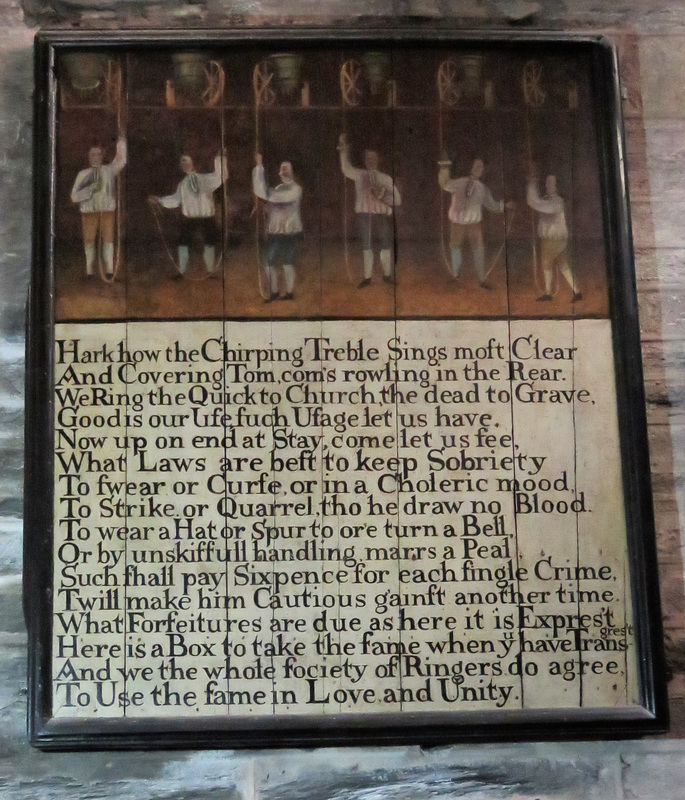 Hark how the Chirping Treble Sings moſt Clear
And Covering Tom, com's rowling in the Rear.
We Ring the Quick to Church, the dead to Grave,
Good is our Uſe ſuch Uſage let us have.
Now up on end at Stay, come let us ſee,
What Laws are beſt to keep Sobriety
To ſwear or Curſe, or in a Choleric mood,
To Strike or Quarrel, tho he draw no Blood.
To wear a Hat or Spur to ore turn a Bell,
Or by unskilfull handling, marrs a Peal,
Such ſhall pay Sixpence for each ſingle Crime,
Twill make him Cautious gainſt another time.
What Forfeitures are due as here it is Expreſt
Here is a Box to take the ſame when yͧ have Transgreſt
And we the whole ſociety of Ringers do agree,
To Uſe the ſame in Love and Unity.